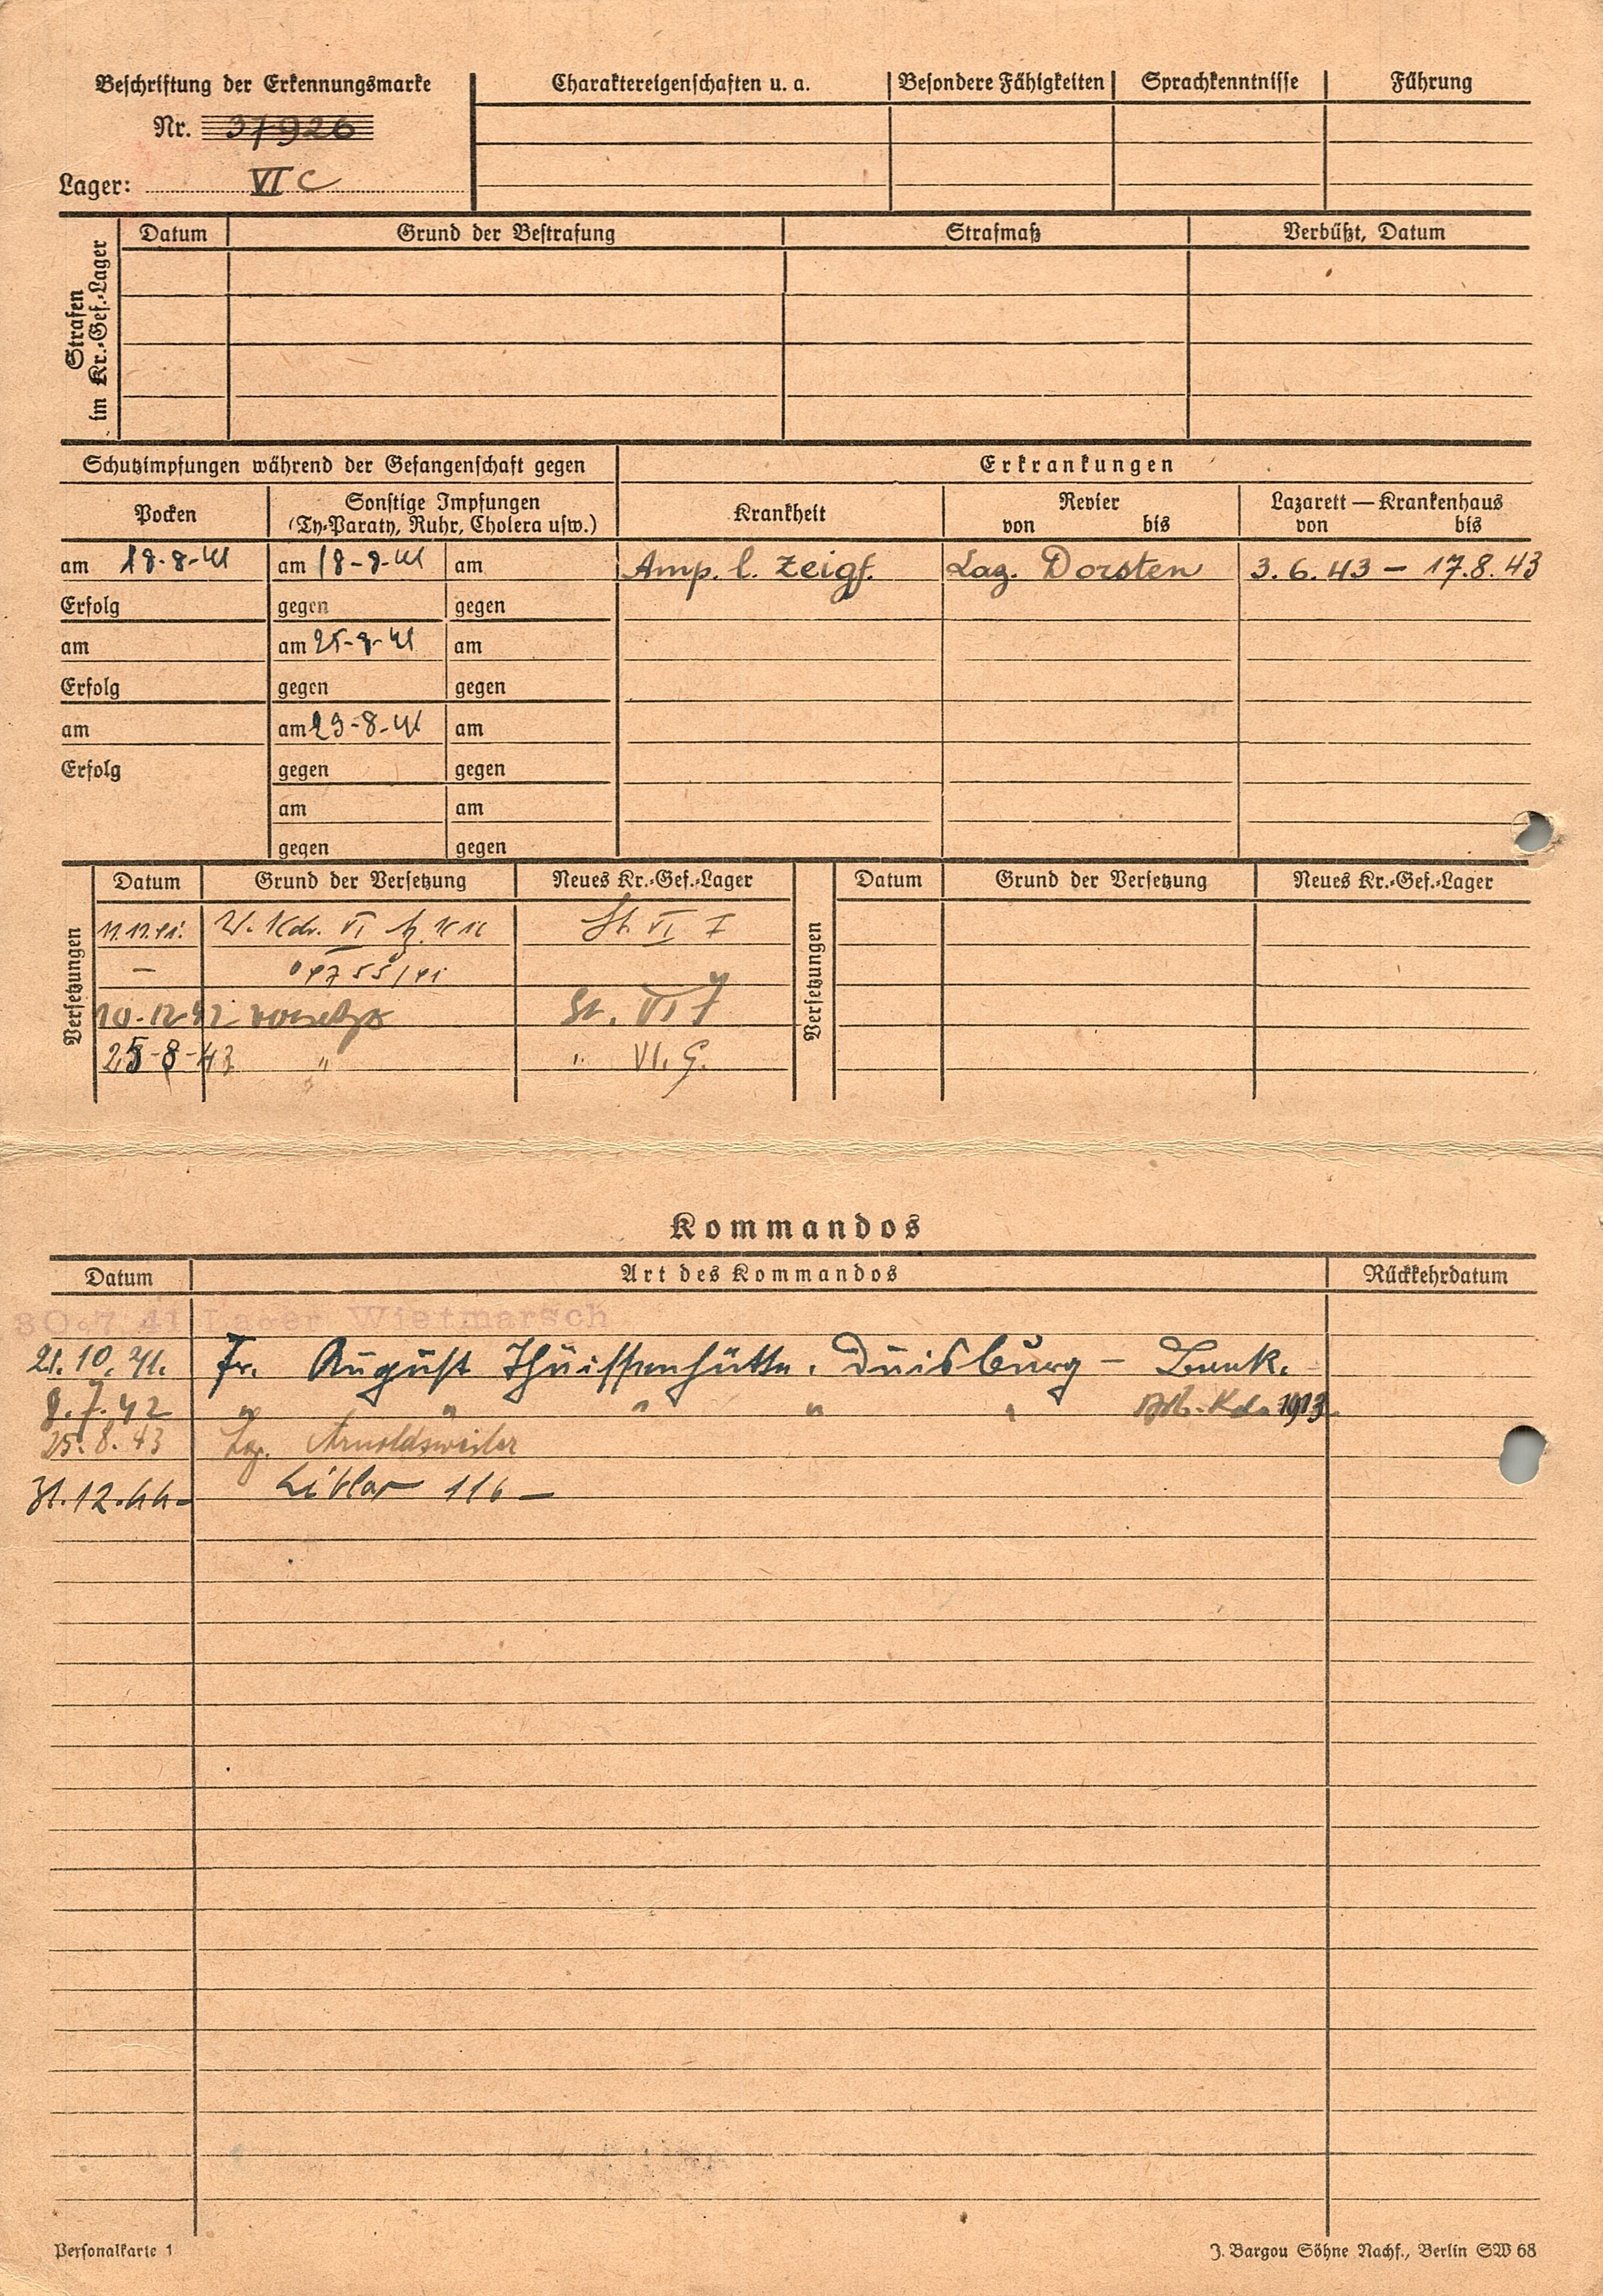 Beschriftung der Erkennungsmarke
Nr. 37926
Lager: VI C
Charaktereigenschaften u. a. Besondere Fähigkeiten Sprachkenntnisse Führung
Strafen im Kr.-Gef.-Lager
Datum Grund der Bestrafung Strafmaß Verbüßt, Datum
Schutzimpfungen während der Gefangenschaft gegen Erkrankungen
Pocken Sonstige Impfungen (Ty-Paraty, Ruhr, Cholera usw.) Krankheit Revier von bis Lazarett — Krankenhaus von bis
am 18-8-41 am 18-8-41 am Amp. l. Zeigf. Laz. Dorsten 3.6.43 – 17.8.43
Erfolg gegen gegen
am am 25-8-41 am
Erfolg gegen gegen
am am 29-8-41 am
Erfolg gegen gegen
am am
gegen gegen
Versetzungen
Datum Grund der Versetzung Neues Kr.-Gef.-Lager
W. Kdo. VI St. VI
–
10-12-42 St. VI J
25-8-43 " " VI. G.
Versetzungen
Datum Grund der Versetzung Neues Kr.-Gef.-Lager
Kommandos
Datum Art des Kommandos Rückkehrdatum
30.7.41 Lager Wietmarsch
21.10.41. Fr. August Thüissenhütte. Duisburg –
8.7.42 " " " " " Arb.-Kdo 1913
25.8.43 Lag. Arnoldsweiler
31.12.44- Liblar 116 –
Personalkarte 1
J. Bargou Söhne Nachf., Berlin SW 68